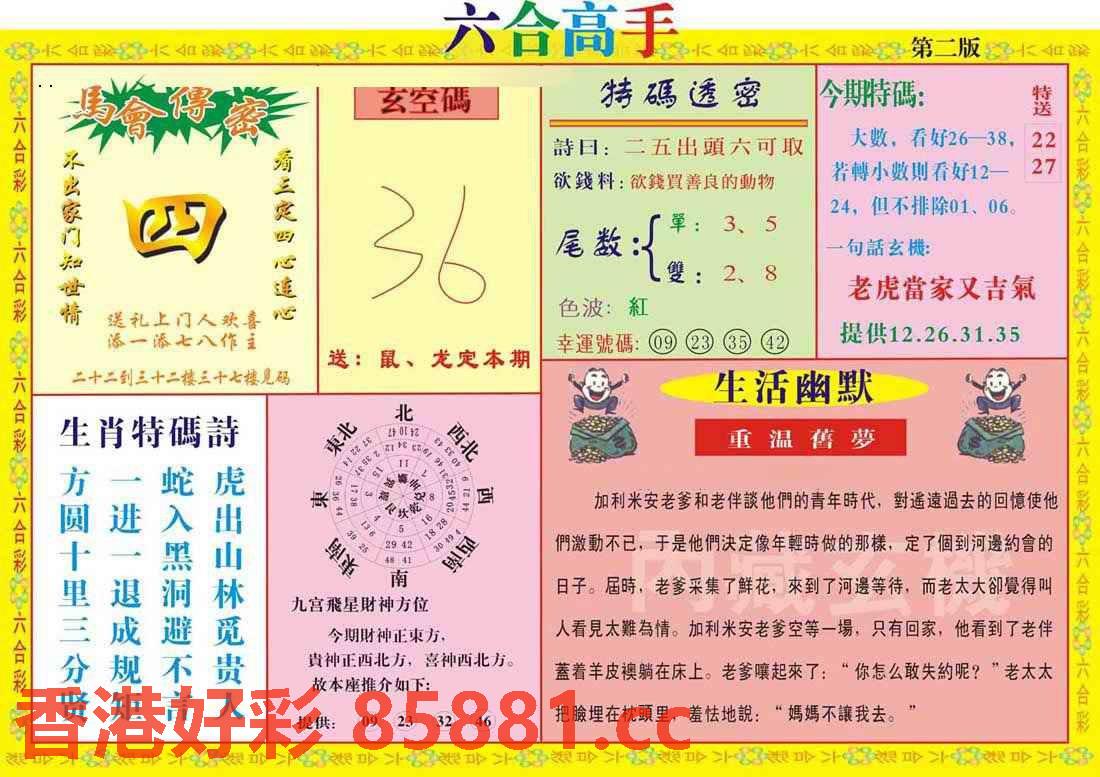 六合高手
第二版
馬會傳密
看三定四心连心
四
不出家门知世情
送礼上门人欢喜
添一添七八作主
二十二到三十二楼三十七楼见码
玄空碼
36
送：鼠、龙定本期
特碼透密
詩曰：二五出頭六可取
欲錢料：欲錢買善良的動物
尾数：
單：3、5
雙：2、8
色波：紅
幸運號碼：09 23 35 42
今期特碼:
特送
22
27
大數，看好26—38，
若轉小數則看好12—
24，但不排除01、06。
一句話玄機:
老虎當家又吉氣
提供12.26.31.35
生肖特碼詩
虎出山林觅贵人
蛇入黑洞避不言
一进一退成规矩
方圆十里三分贤
北
東北
西北
東
西
東南
西南
南
九宫飛星財神方位
今期財神正東方，
貴神正西北方，喜神西北方。
故本座推介如下：
提供：09 23 32 46
生活幽默
重温舊夢
加利米安老爹和老伴談他們的青年時代，對遙遠過去的回憶使他
們激動不已，于是他們決定像年輕時做的那樣，定了個到河邊約會的
日子。屆時，老爹采集了鮮花，來到了河邊等待，而老太大卻覺得叫
人看見太難為情。加利米安老爹空等一場，只有回家，他看到了老伴
蓋着羊皮襖躺在床上。老爹嚷起來了：“你怎么敢失約呢？”老太太
把臉埋在枕頭里，羞怯地說：“媽媽不讓我去。”
丙藏玄機
香港好彩 85881.cc